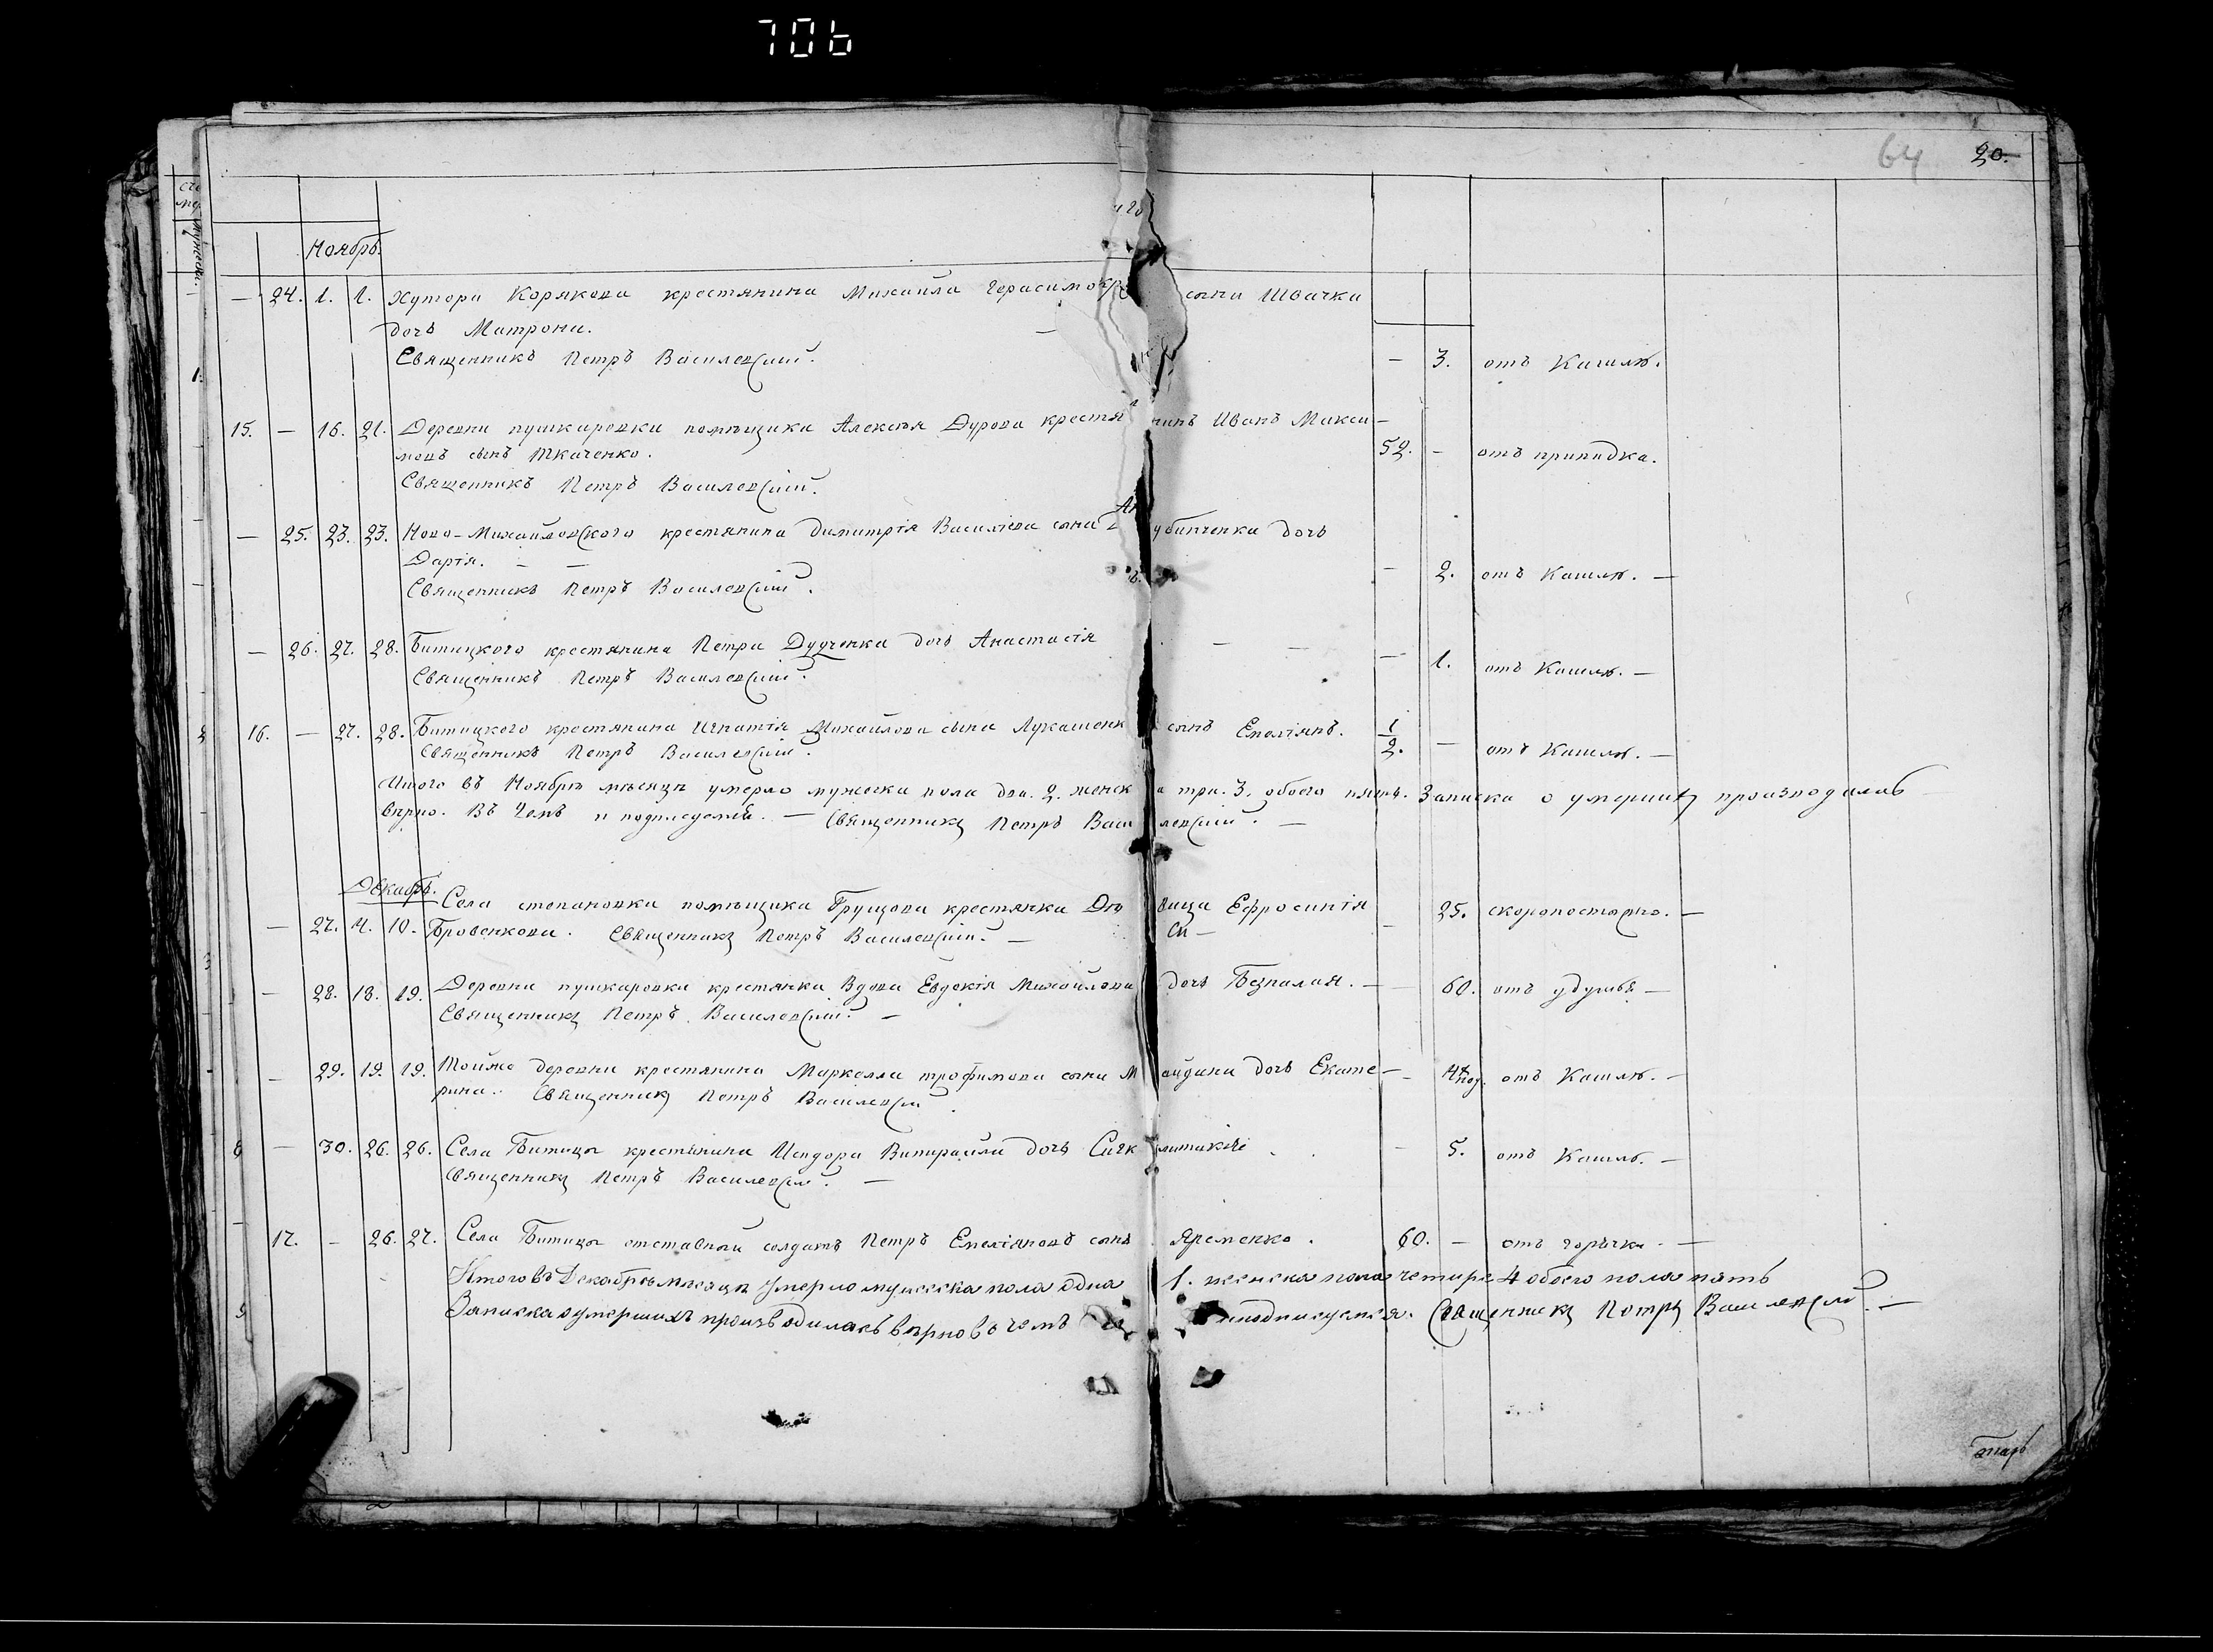 706
64 20.
Ноябрь.
— 24. 1. 1. Хутора Корякова крестянина Михаила Герасимова сына Швачка
дочь Матрона. —
Священникъ Петръ Василевскій. — 3. отъ Кашлю.
15. — 16. 21. Деревни пушкаровки помѣщика Алексѣя Дурова крестянинъ Иванъ Макси-
мовъ сынъ Ткаченко. 52. - отъ припадка.
Священникъ Петръ Василевскій.
— 25. 23. 23. Ново-Михайловского крестянина Димитрія Василіева сына дочь
Дарія. — — — 2. отъ Кашлю. —
Священникъ Петръ Василевскій.
— 26. 27. 28. Битицкого крестянина Петра Дудченка дочь Анастасія — — — 1. отъ Кашлю. —
Священникъ Петръ Василевскій.
16. — 27. 28. Битицкого крестянина Игнатія Михайлова сына Лукашенка сынъ Емеліянъ. 1/2. — отъ Кашлю. —
Священникъ Петръ Василевскій.
Итого въ Ноябрѣ мѣсяцѣ умерло мужеска пола два. 2. женска три. 3. обоего пять. Записка о умершихъ производилась
вѣрно. Въ чемъ и подписуемся. — Священникъ Петръ Василевскій. —
Декабрь.
— 27. 4. 10. Села степановки помѣщика Грущова крестянка Дѣвица Ефросинія — 25. скоропостыжно. —
Бровенкова. Священникъ Петръ Василевскій. —
— 28. 18. 19. Деревни пушкаровки крестянка Вдова Евдокія Михайлова дочь Безпалая. — 60. отъ удушья —
Священникъ Петръ Василевскій. —
— 29. 19. 19. Тойже деревни крестянина Маркелла трофимова сына Майдана дочь Екате- — отъ Кашлю. —
рина. Священникъ Петръ Василевскій.
— 30. 26. 26. Села Битицы крестянина Исидора дочь — 5. отъ Кашлю. —
Священникъ Петръ Василевскій. —
17. — 26. 27. Села Битицы отставный солдатъ Петръ Емеліяновъ сынъ Яременко. 60. — отъ горячки. —
Итого въ Декабрѣ мѣсяцѣ Умерло мужеска пола одна 1. женска пола четыре 4 обоего пола пять
Записка о умершихъ производилась вѣрно въ чемъ и подписуемся. Священникъ Петръ Василевскій. —